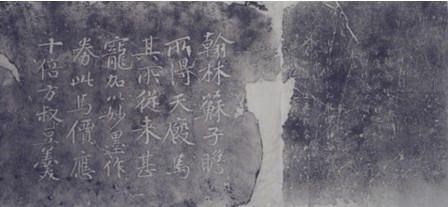 翰林蘇子瞻
所得天廄馬
其所從來甚
寵加以妙墨作
券此馬價應
十倍方叔豆羹